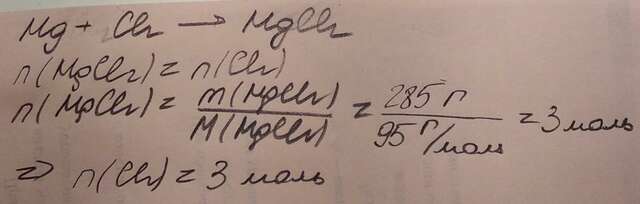 Mg + Cl₂ → MgCl₂
n(MgCl₂) = n(Cl₂)
n(MgCl₂) = m(MgCl₂) / M(MgCl₂) = 285 г / 95 г/моль = 3 моль
=> n(Cl₂) = 3 моль